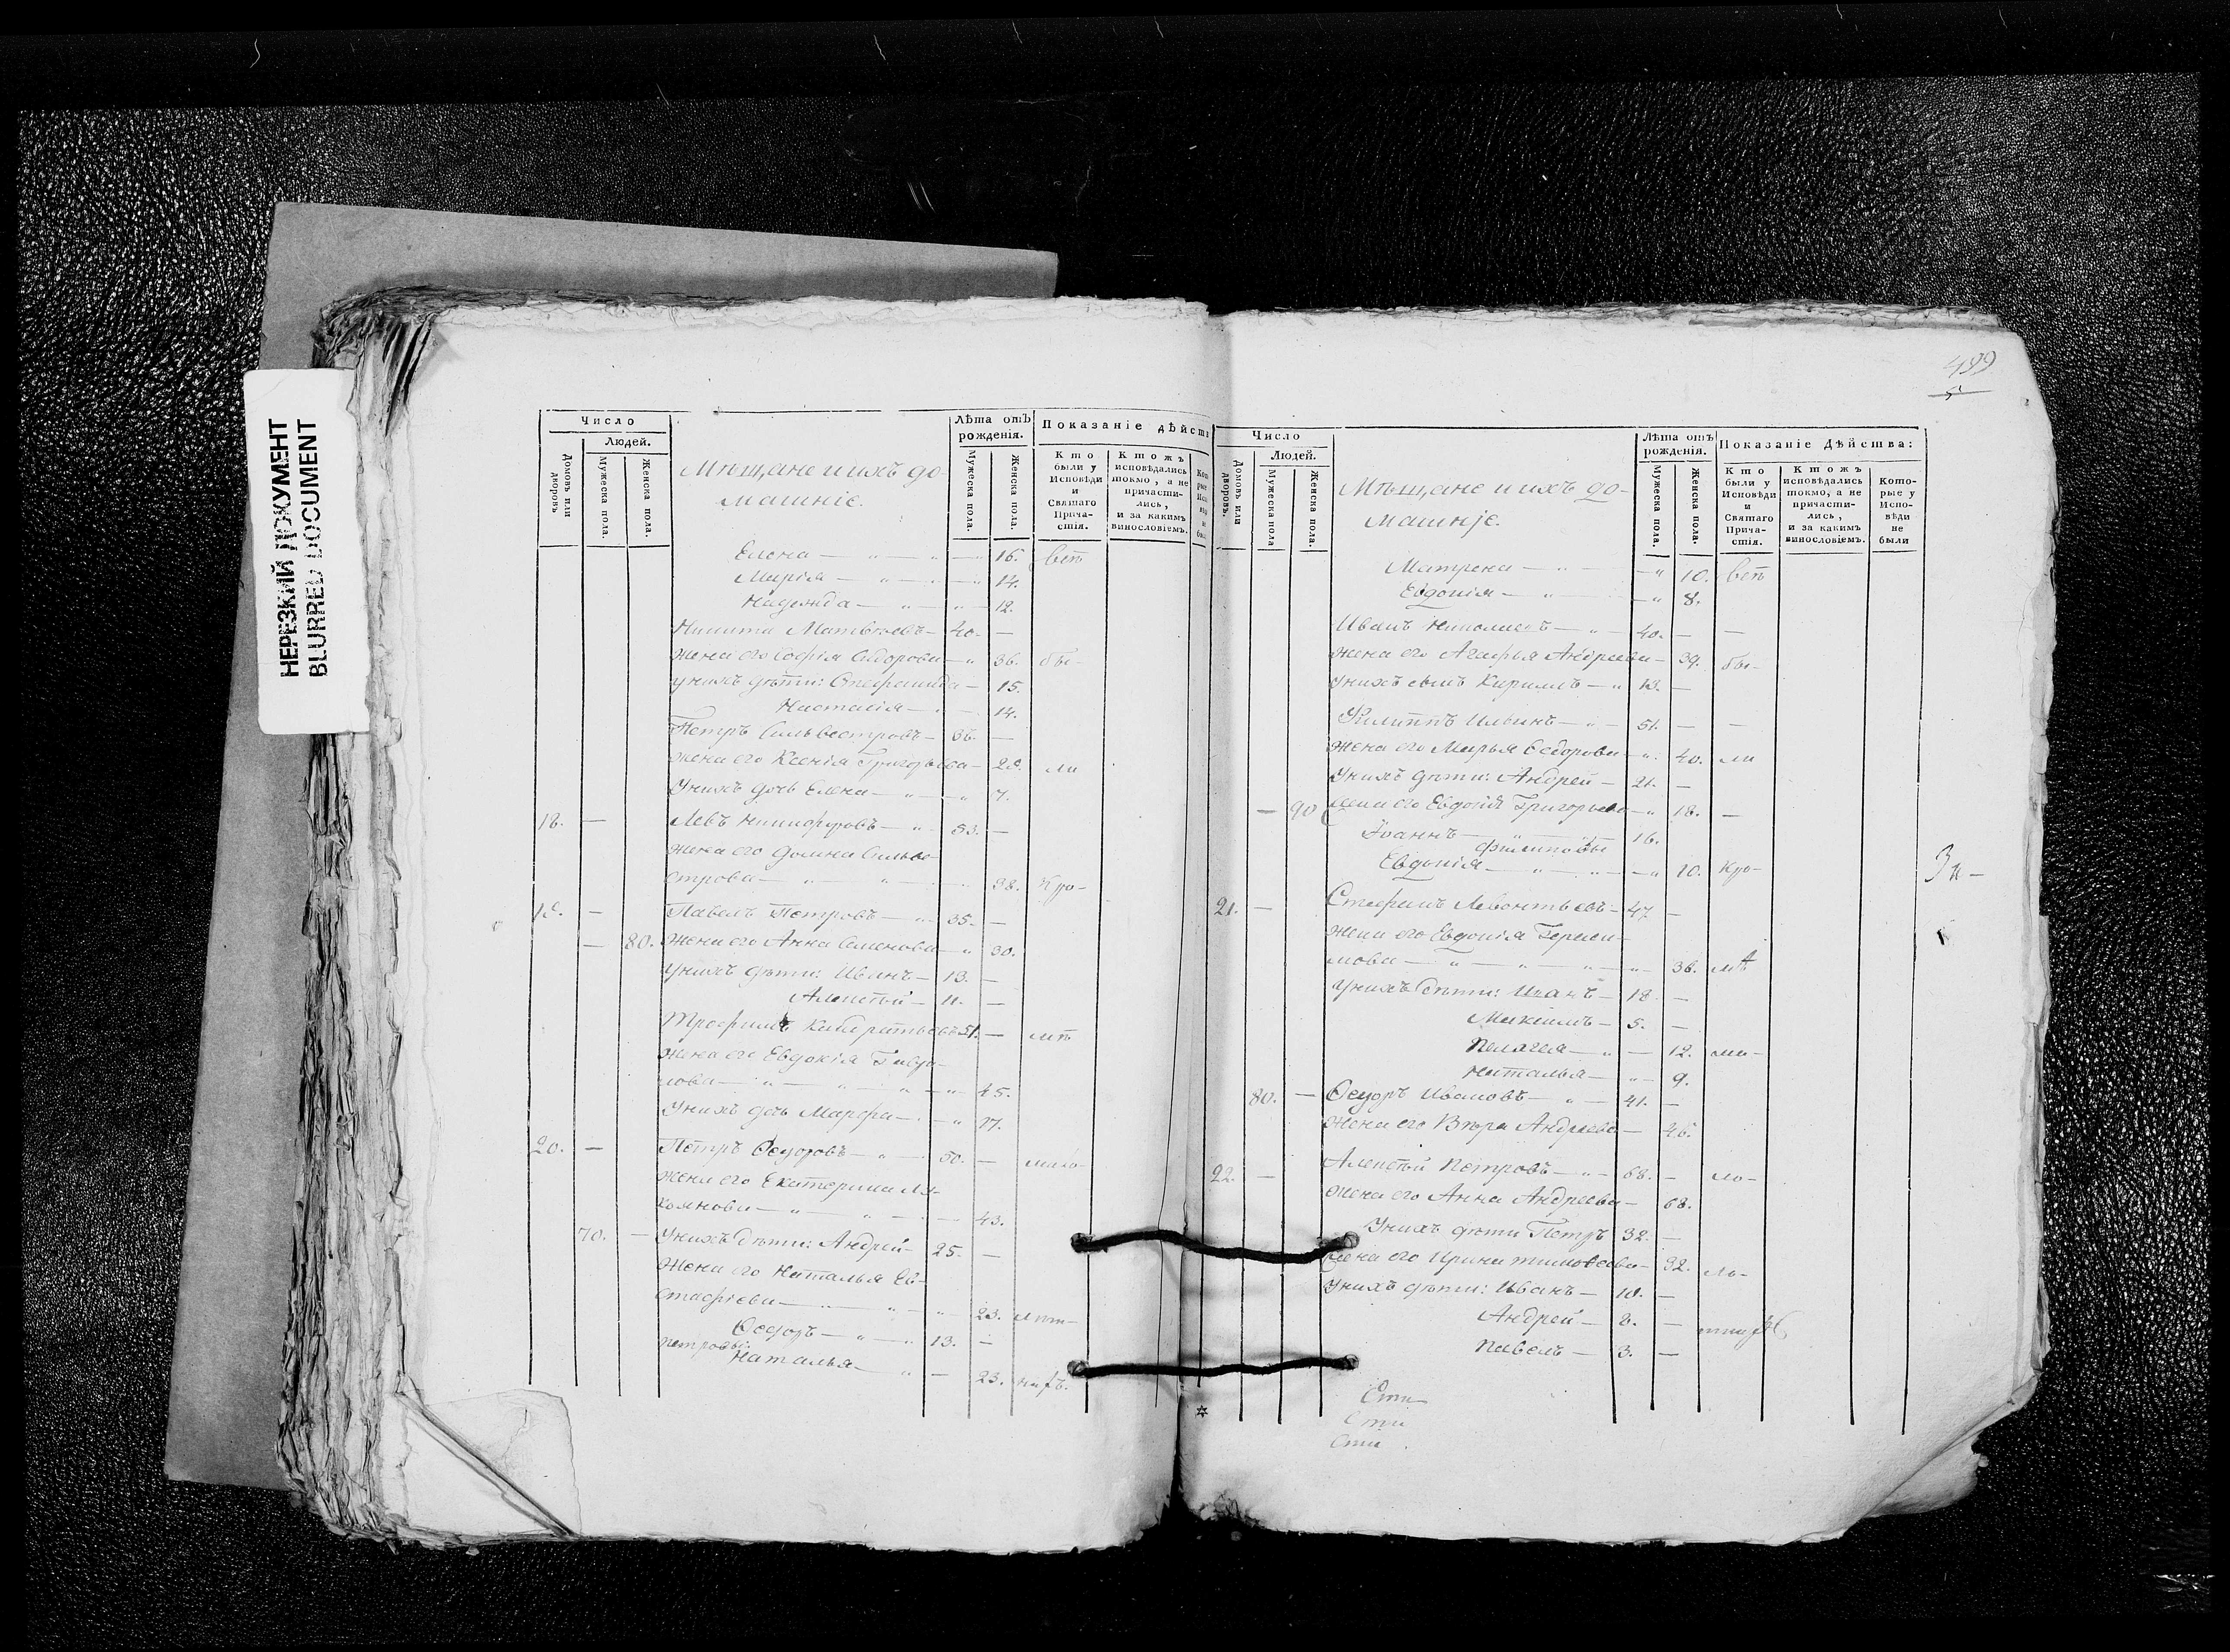 НЕРЕЗКИЙ ДОКУМЕНТ
BLURRED DOCUMENT
Число
Людей.
Домовъ или дворовъ.
Мужеска пола.
Женска пола.
Мѣщане и ихъ до-
машніе.
Лѣта отъ рожденія.
Мужеска пола.
Женска пола.
Показаніе дѣйств
Кто были у Исповѣди и Святаго Прича-стія.
Ктожъ исповѣдались токмо, а не причасти-лись, и за какимъ винословіемъ.
Елена — 16.
Марія — 14.
Надежда — 12.
Никита Матвѣевъ — 40. —
жена его Софія Сидорова — 36. бы-
у нихъ дѣти: Стефанида — 15.
Настасія — 14.
Петръ Сильвестровъ — 36. —
жена его Ксенія Григорьева — 28. ли
У нихъ дочь Елена — 7.
18. — Левъ Никифоровъ — 53. —
жена его Домна Сильве-
строва — 38. Кро-
19. — Павелъ Петровъ — 35. —
— 80. жена его Анна Семенова — 30.
у нихъ дѣти: Иванъ — 13. —
Алексѣй — 11. —
Трофимъ 51. — мѣ
жена его Евдокія
нова — 45.
У нихъ дочь Марфа — 17.
20. — Петръ Ѳедоровъ — 50. —
жена его Екатерина Лу-
кьянова — 43.
70. — У нихъ дѣти: Андрей — 25. —
Жена его Наталья Ев-
стафіева — 23.
Ѳедоръ — 13. —
Петровы:
Наталья — 23.
499
5
Число
Людей.
Домовъ или дворовъ.
Мужеска пола
Женска пола.
Мѣщане и ихъ до-
машніе.
Лѣта отъ рожденія.
Мужеска пола.
Женска пола.
Показаніе Дѣйства:
Кто были у Исповѣди и Святаго Прича-стія.
Ктожъ исповѣдались токмо, а не причасти-лись, и за какимъ винословіемъ.
Кото-рые у Испо-вѣди не были
Матрена — 10.
Евдокія — 8.
Иванъ Николаевъ — 40. — —
жена его Агафья Андреева — 39. бы-
у нихъ сынъ Кирилъ — 13. —
Филиппъ Ильинъ — 51. — —
жена его Марья Ѳедорова — 40. ли
У нихъ дѣти: Андрей — 21. —
— 90 жена его Евдокія Григорьева — 18. —
Іоаннъ — 16.
Филиповы
Евдокія — 10. Кро-
За-
21. — Стефанъ Леонтьевъ — 47 —
жена его Евдокія Гераси-
мова — 36. мѣ
У нихъ дѣти: Иванъ — 18. —
Максимъ — 5. —
Пелагея — 12.
Наталья — 9.
80. — Ѳедоръ Ивановъ — 41. —
жена его Вѣра Андреева — 46.
22. — Алексѣй Петровъ — 68. — ло-
жена его Анна Андреева — 68.
У нихъ дѣти Петръ 32. —
жена его Ирина Тимоѳеева — 32. лѣ-
У нихъ дѣти: Иванъ — 10. —
Андрей — 8. —
Павелъ — 3. —